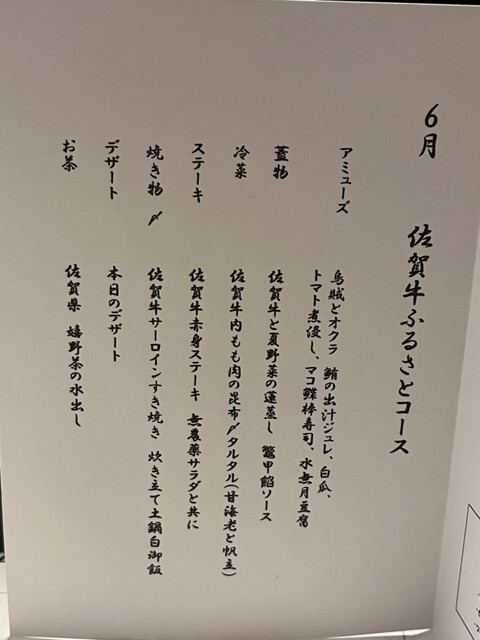 6月　佐賀牛ふるさとコース
アミューズ　烏賊とオクラ　鮪の出汁ジュレ、白瓜、
トマト煮浸し、マコ鰈棒寿司、水無月豆腐
蓋物　佐賀牛と夏野菜の蓮蒸し　鼈甲餡ソース
冷菜　佐賀牛内もも肉の昆布〆タルタル(甘海老と帆立)
ステーキ　佐賀牛赤身ステーキ　無農薬サラダと共に
焼き物　〆　佐賀牛サーロインすき焼き　炊き立て土鍋白御飯
デザート　本日のデザート
お茶　佐賀県　嬉野茶の水出し